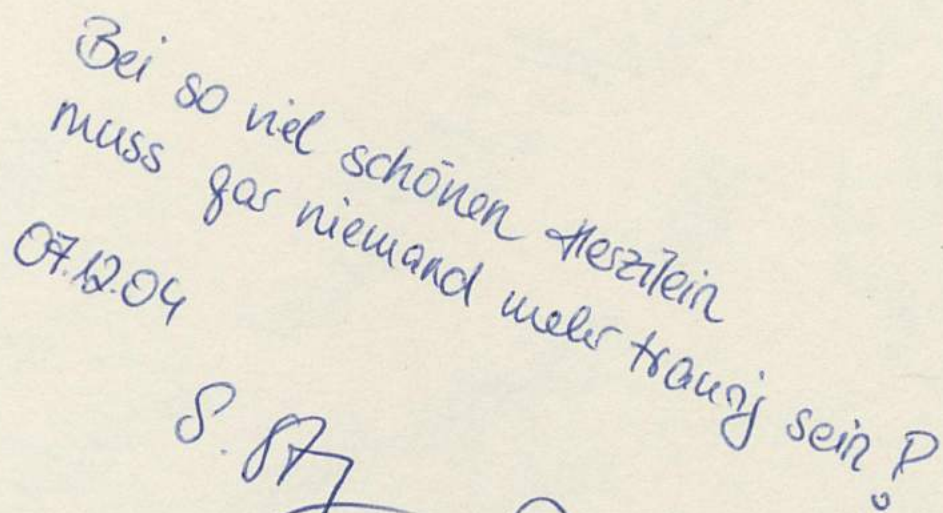 Bei so viel schönen Herzilein
muss gar niemand mehr traurig sein!
07.12.04